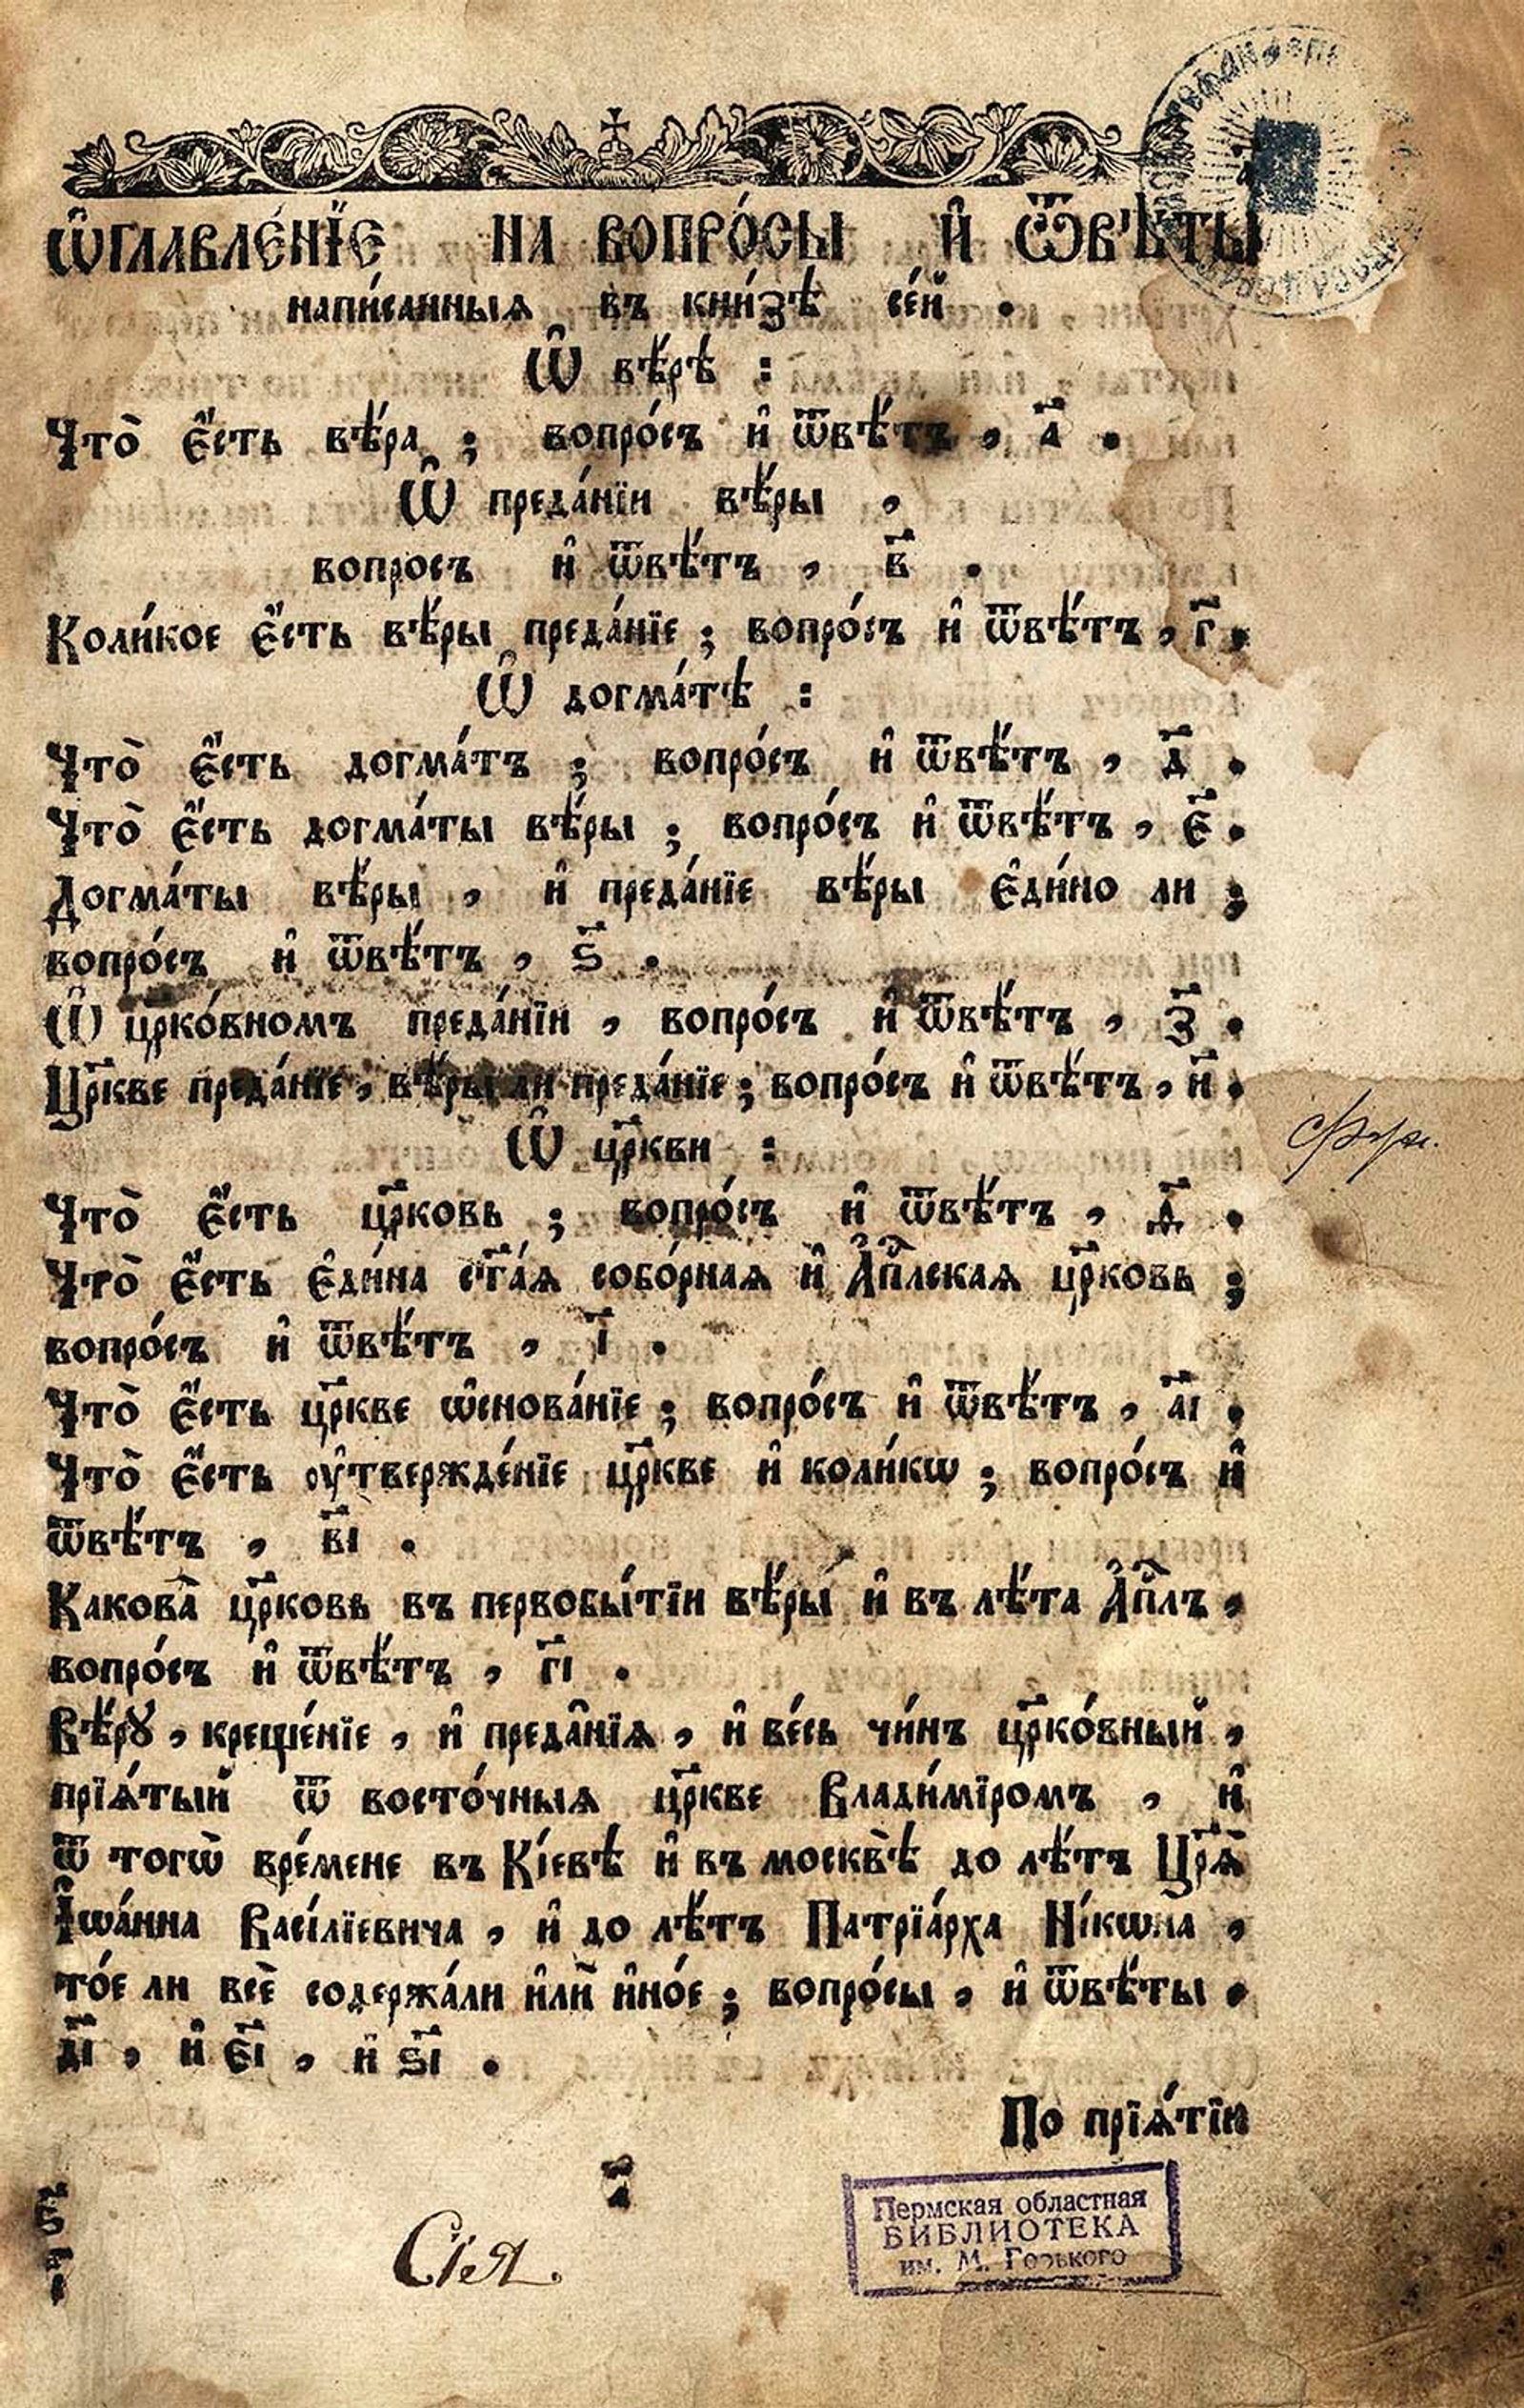 Ѡ҆главле́нїе на вопро́сы и҆ ѿвѣ́ты
напи́санныѧ въ кни́зѣ се́й .
Ѡ҆ вѣ́рѣ :
Что̀ є҆́сть вѣ́ра ; вопро́съ и҆ ѿвѣ́тъ , а҃ .
Ѡ҆ преда́нїи вѣ́ры ,
вопросъ и҆ ѿвѣ́тъ , в҃ .
Коли́кое є҆́сть вѣ́ры преда́нїе ; вопро́съ и҆ ѿвѣ́тъ , г҃ .
Ѡ҆ догма́тѣ :
Что̀ є҆́сть догма́тъ ; вопро́съ и҆ ѿвѣ́тъ , д҃ .
Что̀ є҆́сть догма́ты вѣ́ры ; вопро́съ и҆ ѿвѣ́тъ , є҃ .
Догма́ты вѣ́ры , и҆ преда́нїе вѣ́ры є҆ди́но ли ;
вопро́съ и҆ ѿвѣ́тъ , ѕ҃ .
Ѡ҆ цр҃ко́вномъ преда́нїи , вопро́съ и҆ ѿвѣ́тъ , з҃ .
Цр҃кве преда́нїе , вѣ́ры ли преда́нїе ; вопро́съ и҆ ѿвѣ́тъ , и҃ .
Ѡ҆ цр҃кви :
Что̀ є҆́сть цр҃ковь ; вопро́съ и҆ ѿвѣ́тъ , ѳ҃ .
Что̀ є҆́сть є҆ди́на ст҃а́ѧ собо́рнаѧ и҆ А҆п҃лскаѧ цр҃ковь ;
вопро́съ и҆ ѿвѣ́тъ , і҃ .
Что̀ є҆́сть цр҃кве ѡ҆снова́нїе ; вопро́съ и҆ ѿвѣ́тъ , а҃і .
Что̀ є҆́сть оу҆твержде́нїе цр҃кве и҆ коли́кѡ ; вопро́съ и҆
ѿвѣ́тъ , в҃і .
Какова̀ цр҃ковь въ первобы́тїи вѣ́ры и҆ въ лѣ́та А҆п҃лъ ,
вопро́съ и҆ ѿвѣ́тъ , г҃і .
Вѣ́рꙋ , креще́нїе , и҆ преда̑нїѧ , и҆ ве́сь чи́нъ цр҃ко́вный ,
прїѧ́тый ѿ восто́чныѧ цр҃кве Влади́мїромъ , и҆
ѿ тогѡ̀ вре́мене въ Кі́евѣ и҆ въ москвѣ̀ до лѣ́тъ Цр҃ѧ̀
І҆ѡа́нна Васі́лїевича , и҆ до лѣ́тъ Патрїа́рха Ні́кѡна ,
то́е ли всѐ содержа́ли и҆лѝ и҆но́е ; вопро́сы , и҆ ѿвѣ́ты .
д҃і , и҆ є҃і , и҆ ѕ҃і .
По прїѧ́тїи
а҃
Сія.
Пермская областная
БИБЛИОТЕКА
им. М. Горького